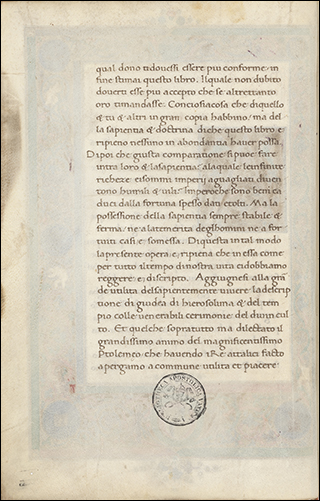 qual dono tidouessi essere piu conforme in
fine stimai questo libro. Ilquale non dubito
douerti esse piu accepto che se altretanto
oro timandasse. Conciosiacosa che diquello
& tu & altri in gran copia habbino; ma del
la sapientia & doctrina diche questo libro e
ripieno nessuno in abondantia hauer possa.
Dipoi che giusta comparatione si puoe fare
intra loro & la sapientia, alaquale seinfinite
richeze et sommi imperii aguagliati diuen
tono humili & uili. Imperoche sono beni ca
duci dalla fortuna spesso dati et tolti. Ma la
possessione della sapientia sempre stabile &
ferma, ne a la temerita deglhomini ne a for
tuiti casi e somessa. Di questa in tal modo
la presente opera e ripiena che in essa come
per tutto il tempo di nostra uita ci dobbiamo
reggere, e discripto. Aggiugnesi alla gra
de utilita del sapientemente uiuere la descrip
tione di giudea di hierosolima & del tem
pio colle uenerabili cerimonie del diuin cul
to. Et quel che sopratutto ma dilectato il
grandissimo animo del magnificentissimo
Ptolemeo che hauendo i Re attalici facto
apergamo a commune utilita et piacere
BIBLIOTECA APOSTOLICA VATICANA